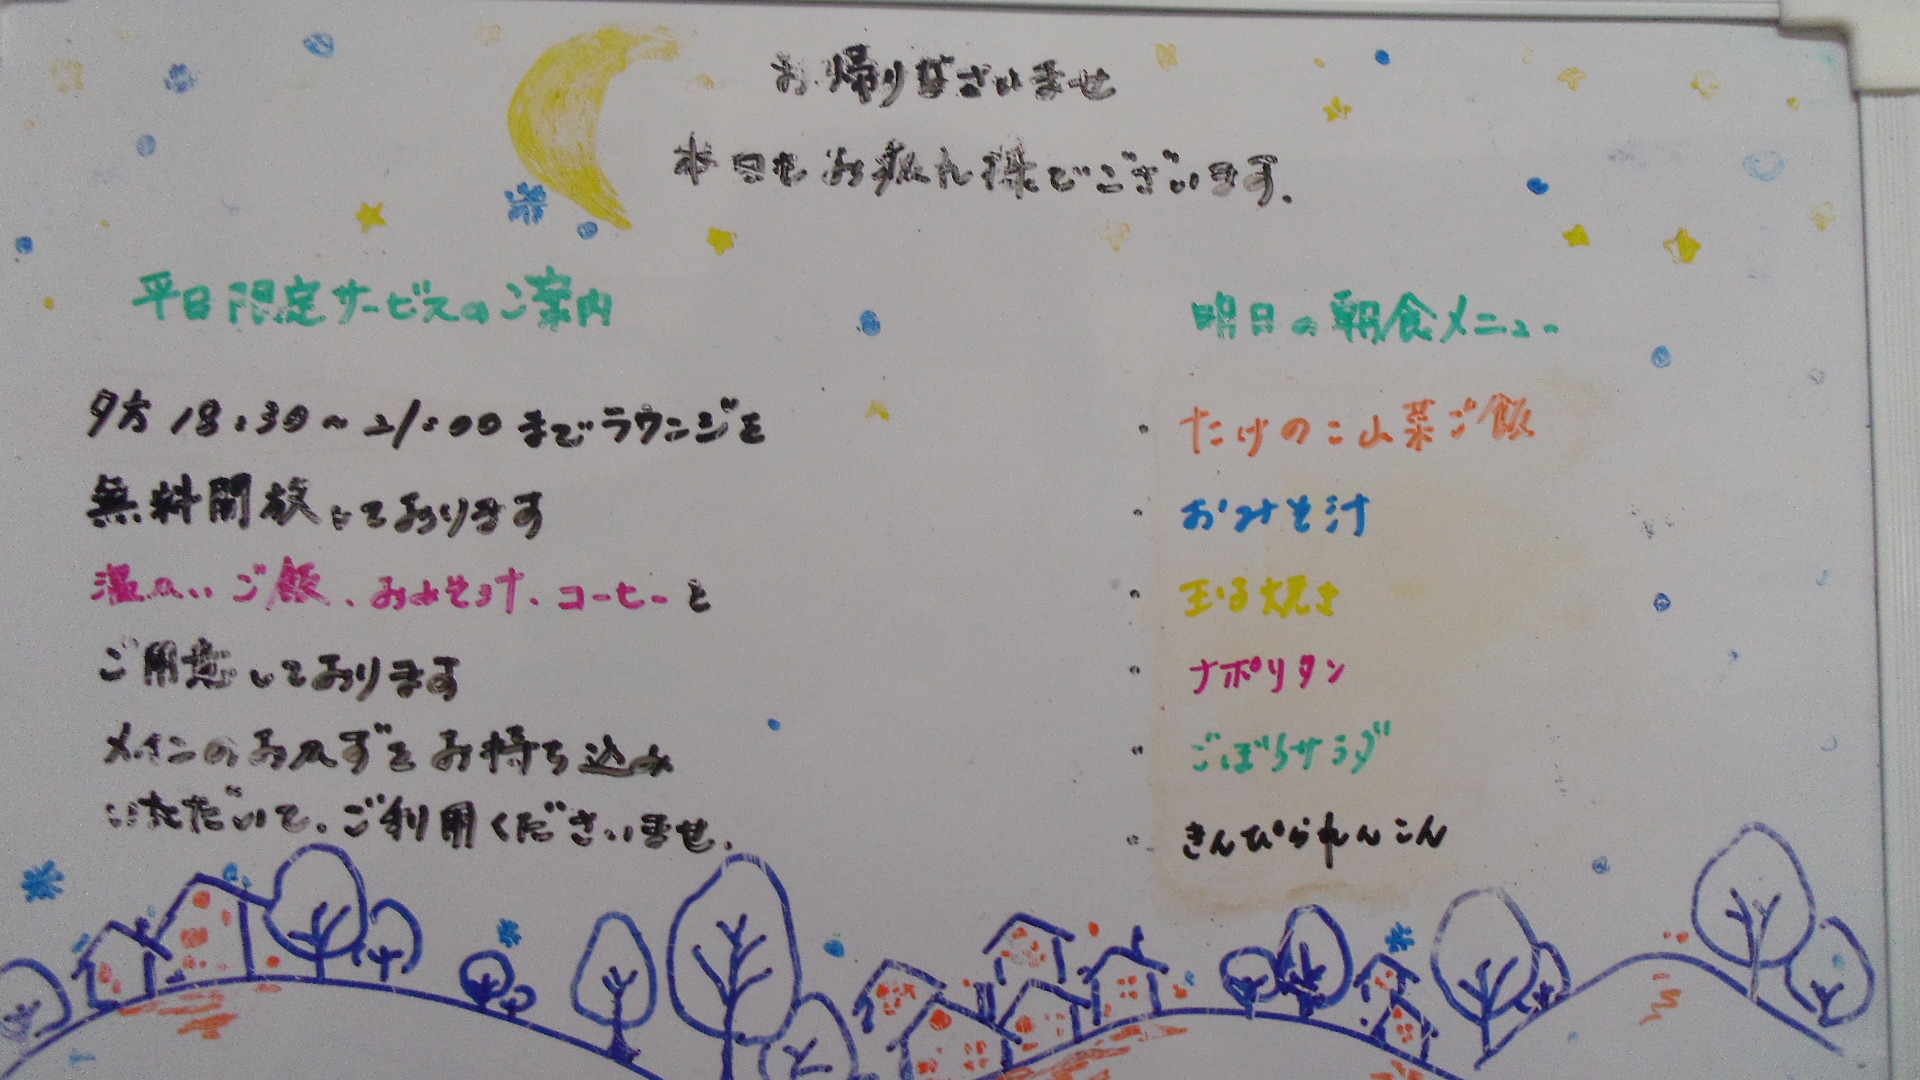 お帰りなさいませ
本日もお疲れ様でございます.
平日限定サービスのご案内
夕方 18:30～21:00 までラウンジを
無料開放しております
温かいご飯、おみそ汁、コーヒーと
ご用意しております
メインのおかずをお持ち込み
いただいて。ご利用くださいませ.
明日の朝食メニュー
・たけのこ山菜ご飯
・おみそ汁
・玉子焼き
・ナポリタン
・ごぼうサラダ
・きんぴられんこん